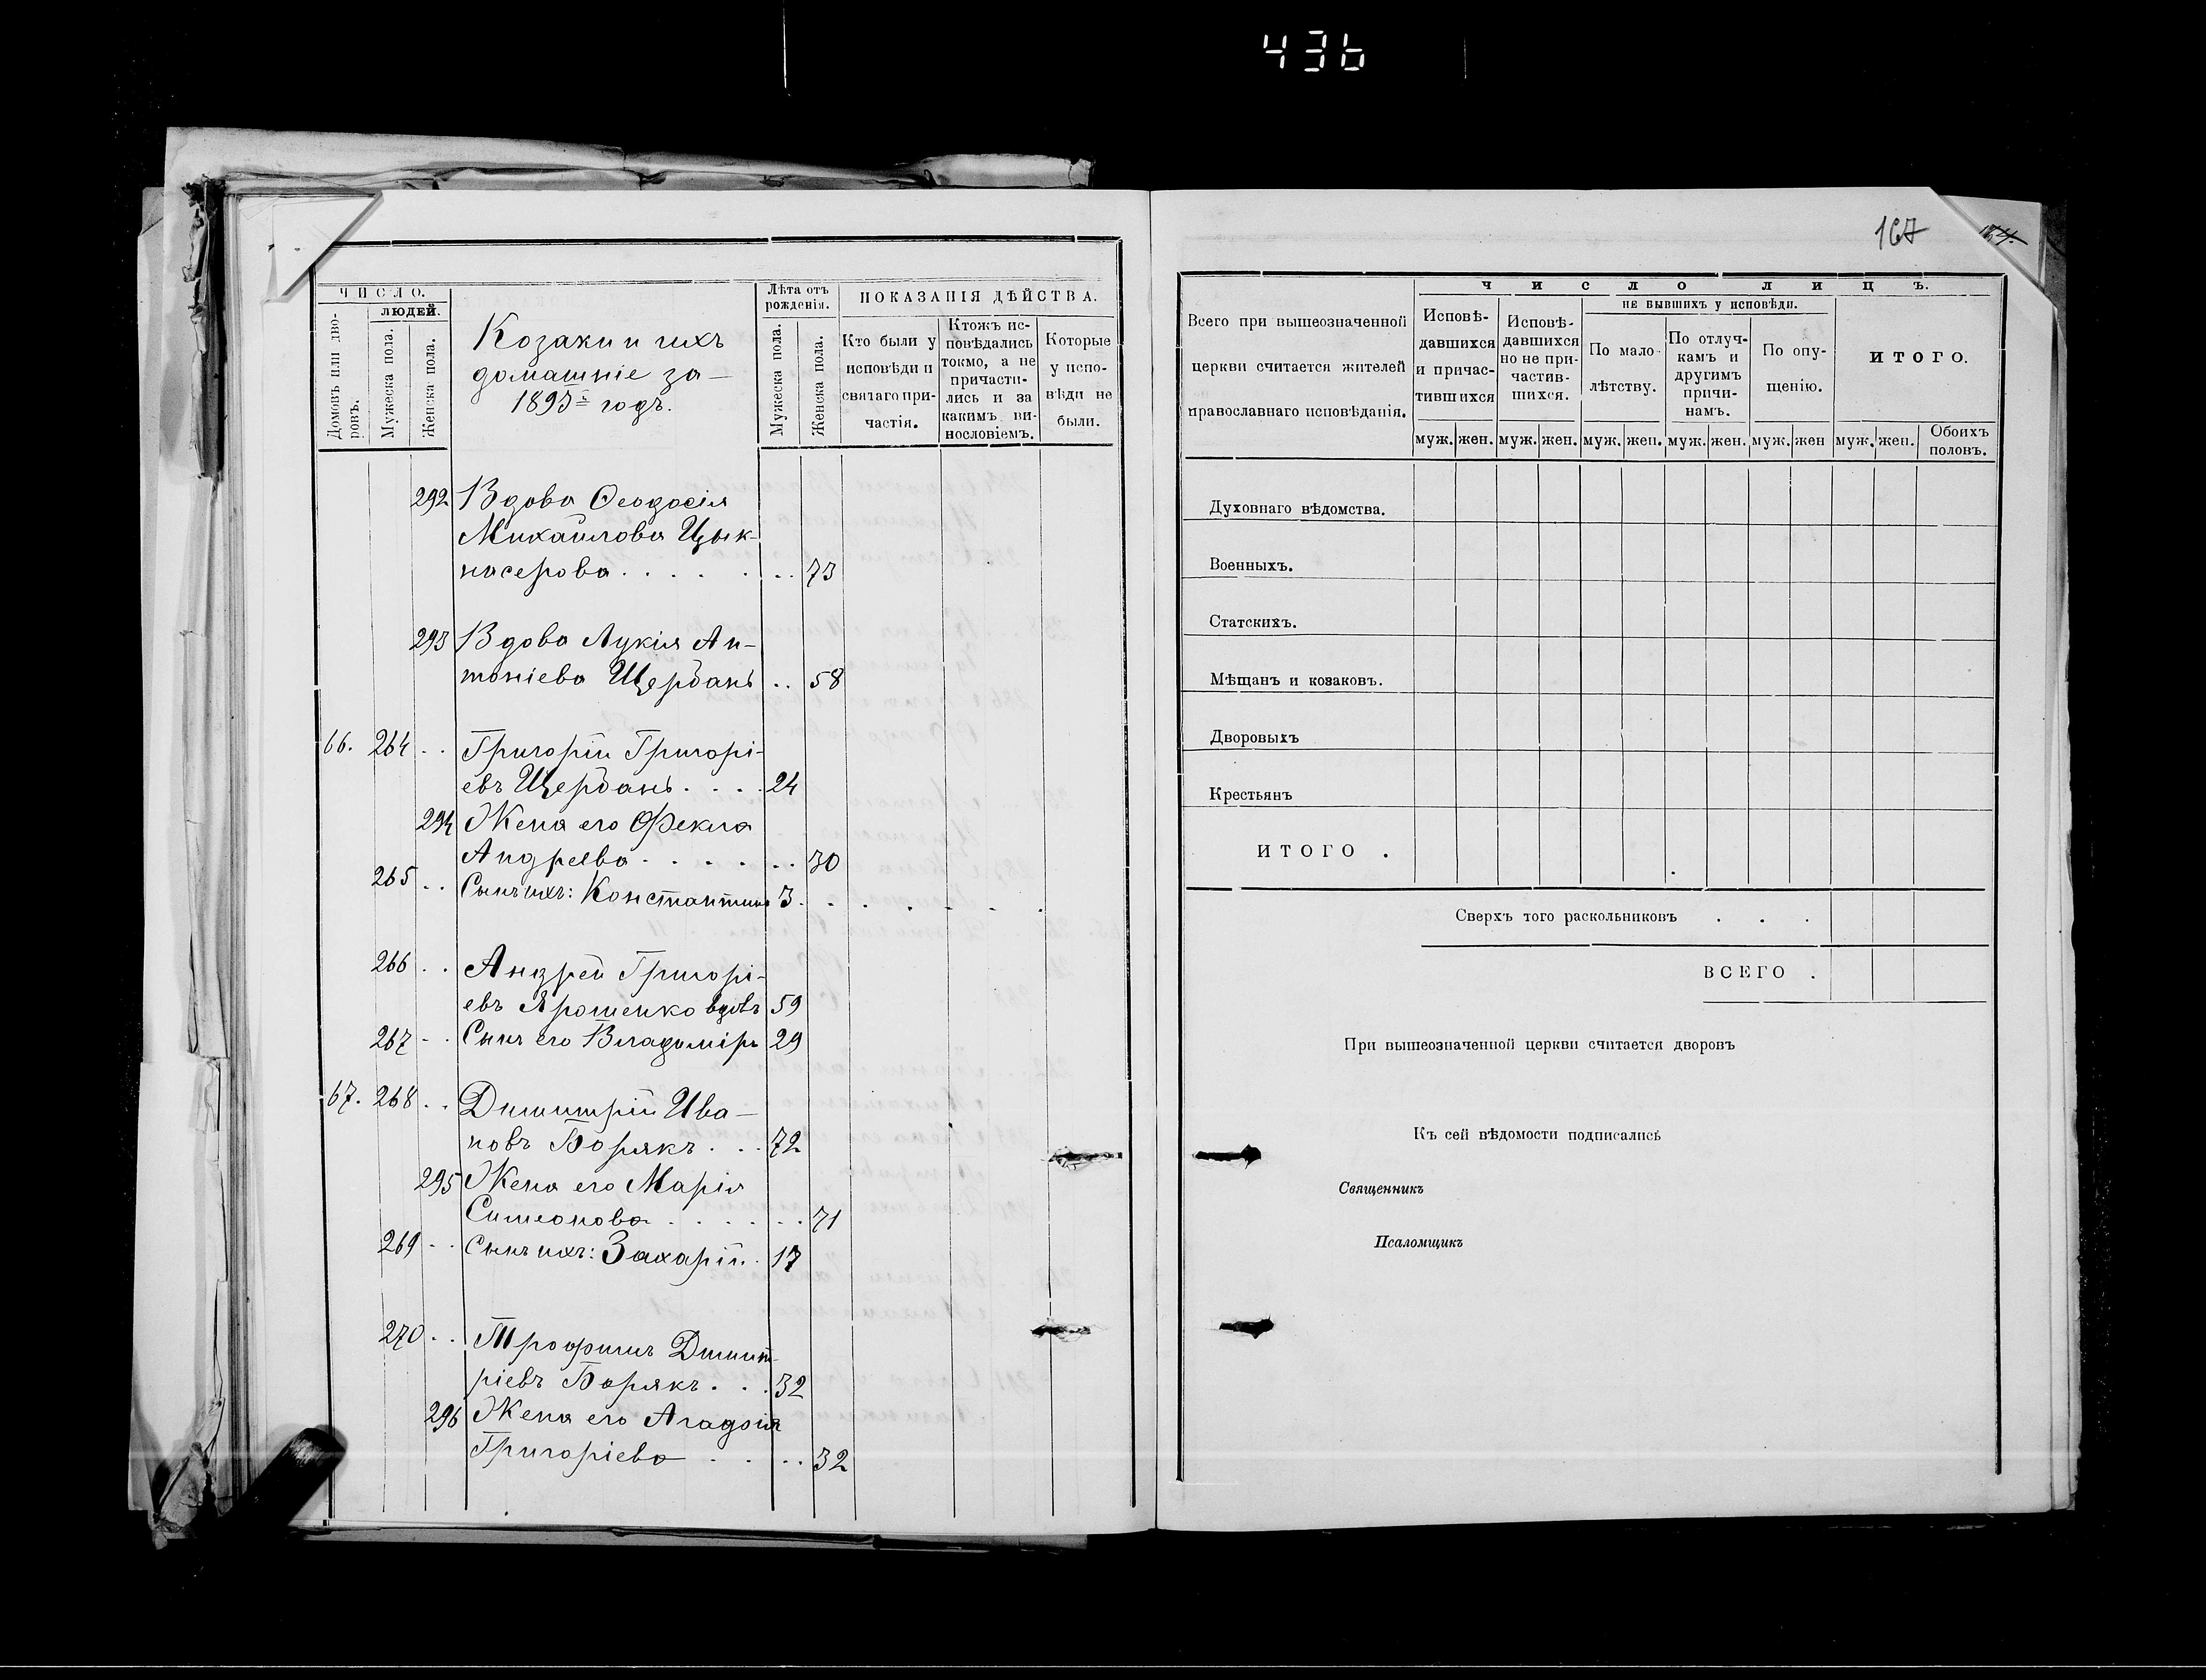 436
ЧИСЛО.
ЛЮДЕЙ.
Домовъ или дво-
ровъ.
Мужеска пола.
Женска пола.
Козаки и ихъ
домашніе за
1893й годъ.
Лѣта отъ
рожденія.
Мужеска пола.
Женска пола.
ПОКАЗАНІЯ ДѢЙСТВА.
Кто были у
исповѣди и
святаго при-
частія.
Ктожъ ис-
повѣдались
токмо, а не
причасти-
лись и за
какимъ ви-
нословіемъ.
Которые
у испо-
вѣди не
были.
292 Вдова Ѳеодосія
Михайлова Цык-
носерова . . . . . . . 73
293 Вдова Лукія Ан-
тоніева Щербань . . 58
66. 264 . . Григорій Григорі-
евъ Щербань . . . . 24
294 Жена его Фекла
Андреева . . . . . . . 30
265 . . Сынъ ихъ: Константинъ 3 . . . . . . .
266 . . Андрей Григорі-
евъ Ярошенко вдовъ 59
267 . . Сынъ его Владиміръ 29
67. 268 . . Димитрій Ива-
новъ Борякъ . . . 72
295 Жена его Марія
Симеонова . . . . . . 71
269 . . Сынъ ихъ: Захарій . 17
270 . . Трофимъ Димит-
ріевъ Борякъ . . . 32
296 Жена его Агафія
Григоріева . . . . 32
167
Всего при вышеозначенной
церкви считается жителей
православнаго исповѣданія.
ЧИСЛО ЛИЦЪ.
Исповѣ-
давшихся
и причас-
тившихся
Исповѣ-
давшихся
но не при-
частив-
шихся.
НЕ БЫВШИХЪ У ИСПОВѢДИ.
По мало-
лѣтству.
По отлуч-
камъ и
другимъ
причи-
намъ.
По опу-
щенію.
ИТОГО.
муж. жен. муж. жен. муж. жен. муж. жен. муж. жен муж. жен. Обоихъ
половъ.
Духовнаго вѣдомства.
Военныхъ.
Статскихъ.
Мѣщанъ и козаковъ.
Дворовыхъ
Крестьянъ
ИТОГО .
Сверхъ того раскольниковъ . . .
ВСЕГО .
При вышеозначенной церкви считается дворовъ
Къ сей вѣдомости подписались
Священникъ
Псаломщикъ